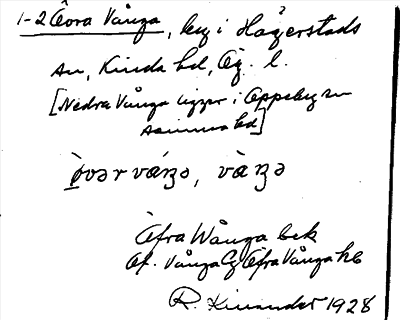 1-2 Övra Vånga, by i Hägerstads
sn, Kinda hd, Ög. l.
[Nedra Vånga ligger i Oppeby sn
samma hd]
ò̤vər váŋə, vàŋə
Öfra Wånga bek
Öf. Vånga Gg Öfra Vånga kb
R. Kinander 1928